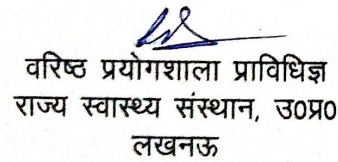 वरिष्ठ प्रयोगशाला प्राविधिज्ञ
राज्य स्वास्थ्य संस्थान, उ0प्र0
लखनऊ